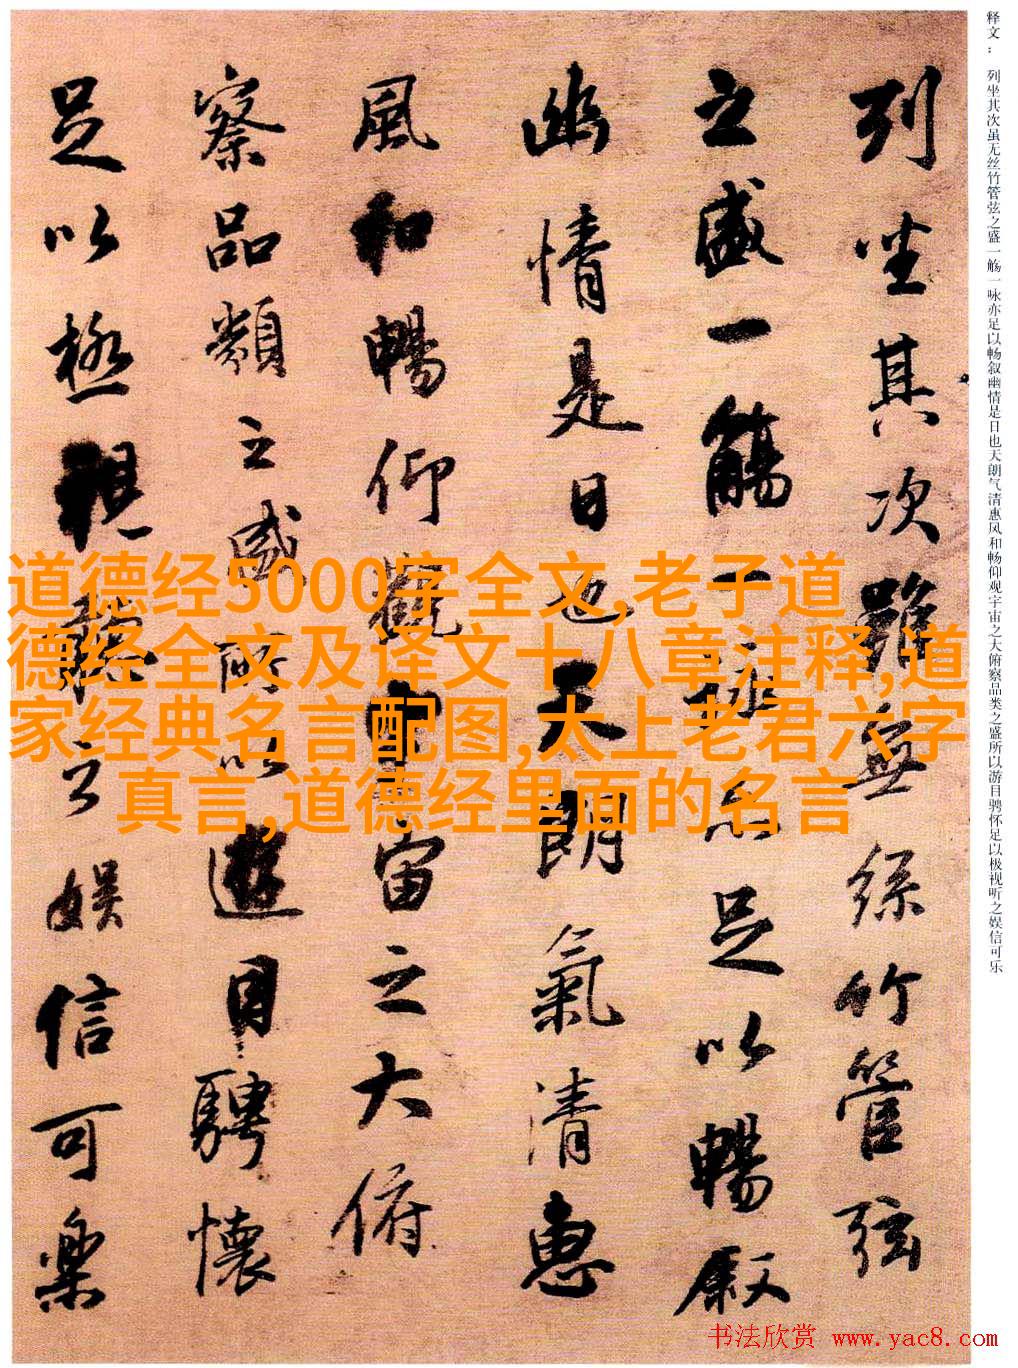 释文：列坐其次虽无丝竹管弦之盛一觞一咏亦足以畅叙幽情是日也天朗气清惠风和畅仰观宇宙之大俯察品类之盛所以游目骋怀足以极视听之娱信可乐
列坐其次雖無絲竹管弦
之盛一觴一詠亦足以暢叙
幽情是日也天朗氣清惠
風和暢仰觀宇宙之大俯
察品類之盛所以遊目騁懷
足以極視聽之娛信可樂
道德经5000字全文,老子道
德经全文及译文十八章注释,道
家经典名言配图,太上老君六字
真言,道德经里面的名言
书法欣赏 www.yac8.com